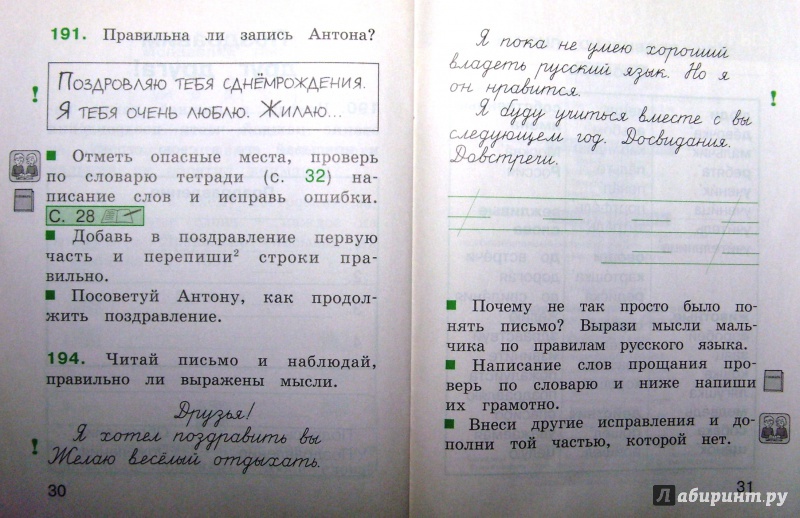 191. Правильна ли запись Антона?
! Поздровляю тебя сднёмрождения.
Я тебя очень люблю. Жилаю...
Отметь опасные места, проверь
по словарю тетради (с. 32) на-
писание слов и исправь ошибки.
С. 28
Добавь в поздравление первую
часть и перепиши² строки пра-
вильно.
Посоветуй Антону, как продол-
жить поздравление.
194. Читай письмо и наблюдай,
правильно ли выражены мысли.
Друзья!
Я хотел поздравить вы
! Желаю весёлый отдыхать.
30
Я пока не умею хороший
владеть русский язык. Но я
он нравится. !
Я буду учиться вместе с вы
следующем год. Досвидания.
Довстречи.
Почему не так просто было по-
нять письмо? Вырази мысли маль-
чика по правилам русского языка.
Написание слов прощания про-
верь по словарю и ниже напиши
их грамотно.
Внеси другие исправления и до-
полни той частью, которой нет.
31
Лабиринт.ру